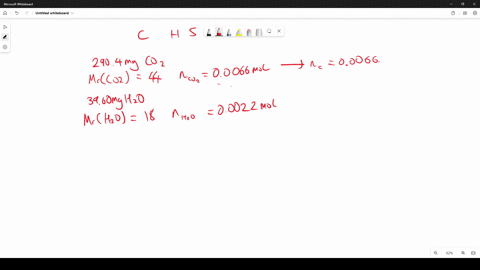 Microsoft Whiteboard
Untitled whiteboard
C H S
290.4mg CO₂
Mr(CO₂) = 44 n CO₂ = 0.0066 mol → n c = 0.0066
39.60mg H₂O
Mr(H₂O) = 18 n H₂O = 0.0022 mol